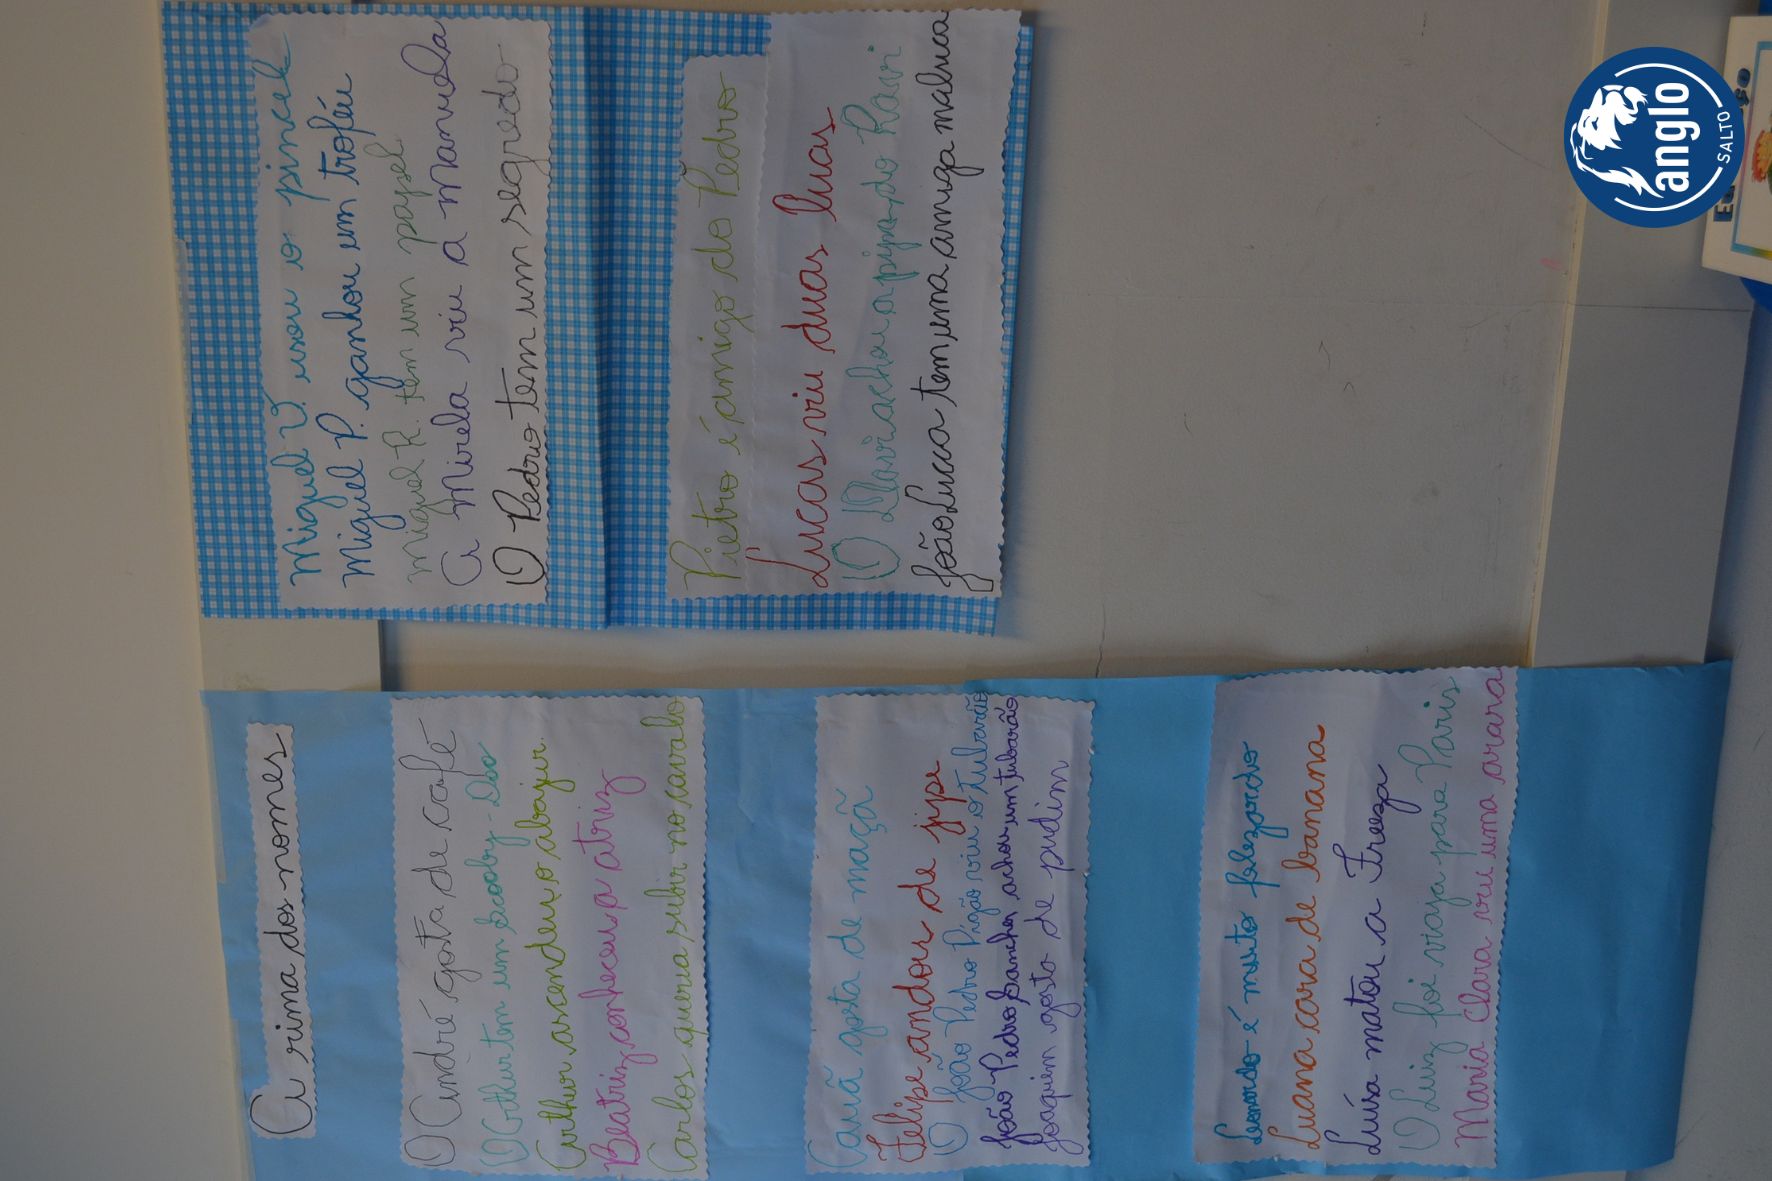 A rima dos nomes
O André gosta de café
O Arthur tem um Scooby-Doo
Arthur ascendeu o abajur.
Beatriz conheceu a atriz
Carlos queria subir no cavalo
Cauã gosta de maçã
Felipe andou de jipe
O João Pedro Pigão viu o tubarão
João Pedro Sanches achou um tubarão
Joaquim gosta de pudim
é muito
Luana cara de banana
Luísa matou a Freeza
O Luiz foi viaja para Paris
Maria Clara viu uma arara
Miguel V. usou o pincel
Miguel P. ganhou um troféu
Miguel R. tem um papel
A Mirela viu a Manuela
O Pedro tem um segredo
Pietro é amigo do Pedro
Lucas viu duas luas
O Davi achou a pipa do Ravi
João Lucca tem uma amiga maluca
anglo
SALTO